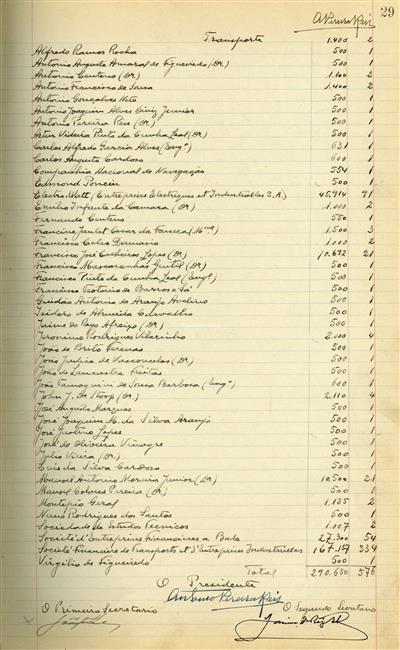 29
A Pereira Reis
Transporte 1.400 2
Alfredo Ramos Rocha 500 1
Antonio Augusto Amaral de Figueiredo (Dr) 500 1
Antonio Centeno (Dr) 1.100 2
Antonio Francisco de Sousa 1.400 2
Antonio Gonçalves Neto 500 1
Antonio Joaquim Alves Diniz Junior 500 1
Antonio Pereira Reis (Dr) 500 1
Artur Videira Pinto da Cunha Leal (Dr) 500 1
Carlos Alfredo Garcia Alves (Engº) 631 1
Carlos Augusto Cardoso 600 1
Companhia Nacional de Navegação 554 1
Edmond Poncin 500 1
Electro-Watt (Entreprises Electriques et Industrielles S.A.) 45.714 91
Emilio Infante da Camara (Dr) 1.000 2
Fernando Centeno 550 1
Cesar da Fonseca 1.500 3
Francisco Celes Damasio 1.000 2
Francisco José Caeheiros Lopes (Dr) 10.672 21
Francisco Mascarenhas Gentil (Dr) 500 1
Francisco Pinto da Cunha Leal (Engº) 500 1
Francisco Teotonio de Barros e Sá 500 1
Guedão Antonio de Araujo Avelino 500 1
Isidoro de Almeida Carvalho 500 1
Jaime do Rego Afreixo (Dr) 500 1
Jeronimo Rodrigues Vilarinho 2.000 4
João de Brito Firmas 500 1
João Judice de Vasconcelos (Dr) 500 1
João de Lencastre Freitas 500 1
João Tamagnini de Sousa Barbosa (Engº) 600 1
John J. de Stoop (Dr) 2.110 4
José Augusto Marques 500 1
José Joaquim M. da Silva Araujo 500 1
José Justino Lopes 500 1
José de Oliveira Vinagre 500 1
Julio Vieira (Dr) 500 1
Luis da Silva Cardoso 500 1
Manuel Antonio Moraes Junior (Dr) 10.500 21
Manuel Colares Pereira (Dr) 500 1
Montepio Geral 1.135 2
Nuno Rodrigues dos Santos 500 1
Sociedade de Estudos Tecnicos 1.007 2
Societé d'Entreprises Financieres a Bale 27.300 54
Société Financiere de Transports et d'Entreprises Industrielles 167.157 334
Virgilio de Figueiredo 500 1
Total 290.650 576
O Presidente
Antonio Pereira Reis
O Primeiro Secretario O Segundo Secretario